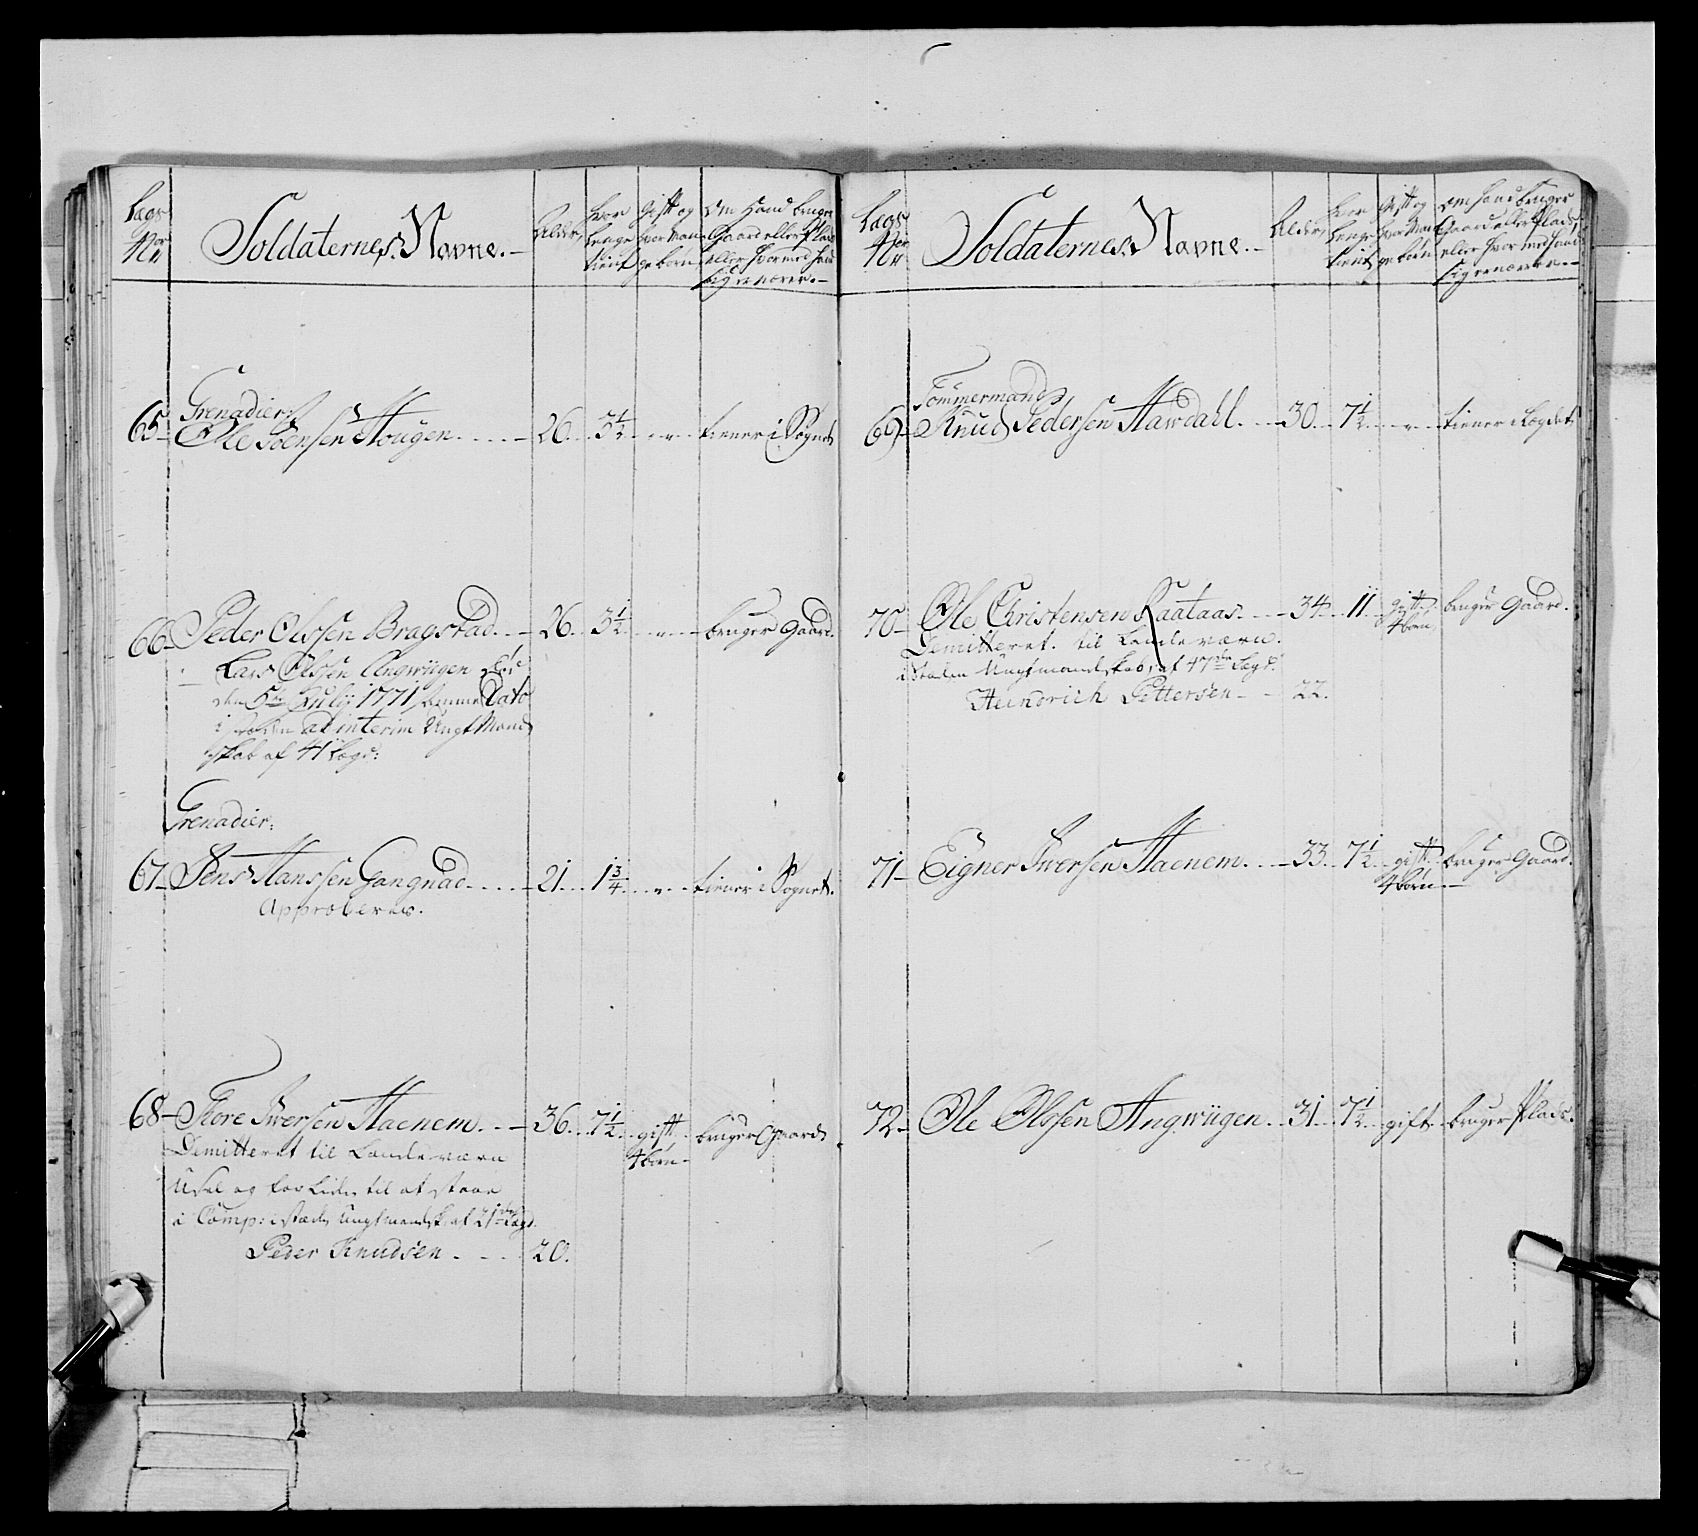 Lægs No
Soldaternes Navne.
Alder
hvor længe tient
Gift og hvor Mange børn
Om Hand bruger Gaard eller Plads eller hvormed Hand sig ernærer.
Grenadier
65 Olle Joensen Hougen 26. 3 1/2 " tiener i Sognet
66 Peder Olssen Bragstad 26. 3 1/2 " bruger Gaard.
Lars Olssen Angwiigen
den 5te July 1771 Dato
ad interim Ungt Mand
skab af 41 Lægd:
Grenadier:
67 Jens Hanssen Gangnad 21. 1 3/4 " tiener i Sognet.
Approberes.
68 Tore Iwersen Haenem. 36. 7 1/2 gift, 4 børn bruger Gaard
Demitteret til Landeværn
og for Liden til at staae
i Comp: i stæden Ungtmandsk: af 21de Lægd.
Peder Knudsen 20.
Lægs No
Soldaternes Navne.
Alder
hvor længe tient
Gift og hvor Mange børn
Om Hand bruger Gaard eller Plads, eller hvormed Hand sig ernærer.
Tømmermand
69 Knud Pedersen Hawdahl. 30. 7 1/2 " tiener i Lægdet
70 Ole Christensen Raataas 34. 11. gift 4 børn, bruger Gaard.
Demitteret til Landeværn.
i Staden Ungtmandskab af 47de Lægd.
Heindrich Pettersen 22.
71 Eigner Iwersen Haenem. 33. 7 1/2 gift 4 børn bruger Gaard.
72 Ole Olssen Angwiigen. 31. 7 1/2 gift bruger Plads.